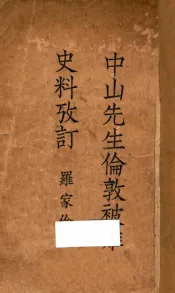 中山先生倫敦被
史料攷訂
羅家